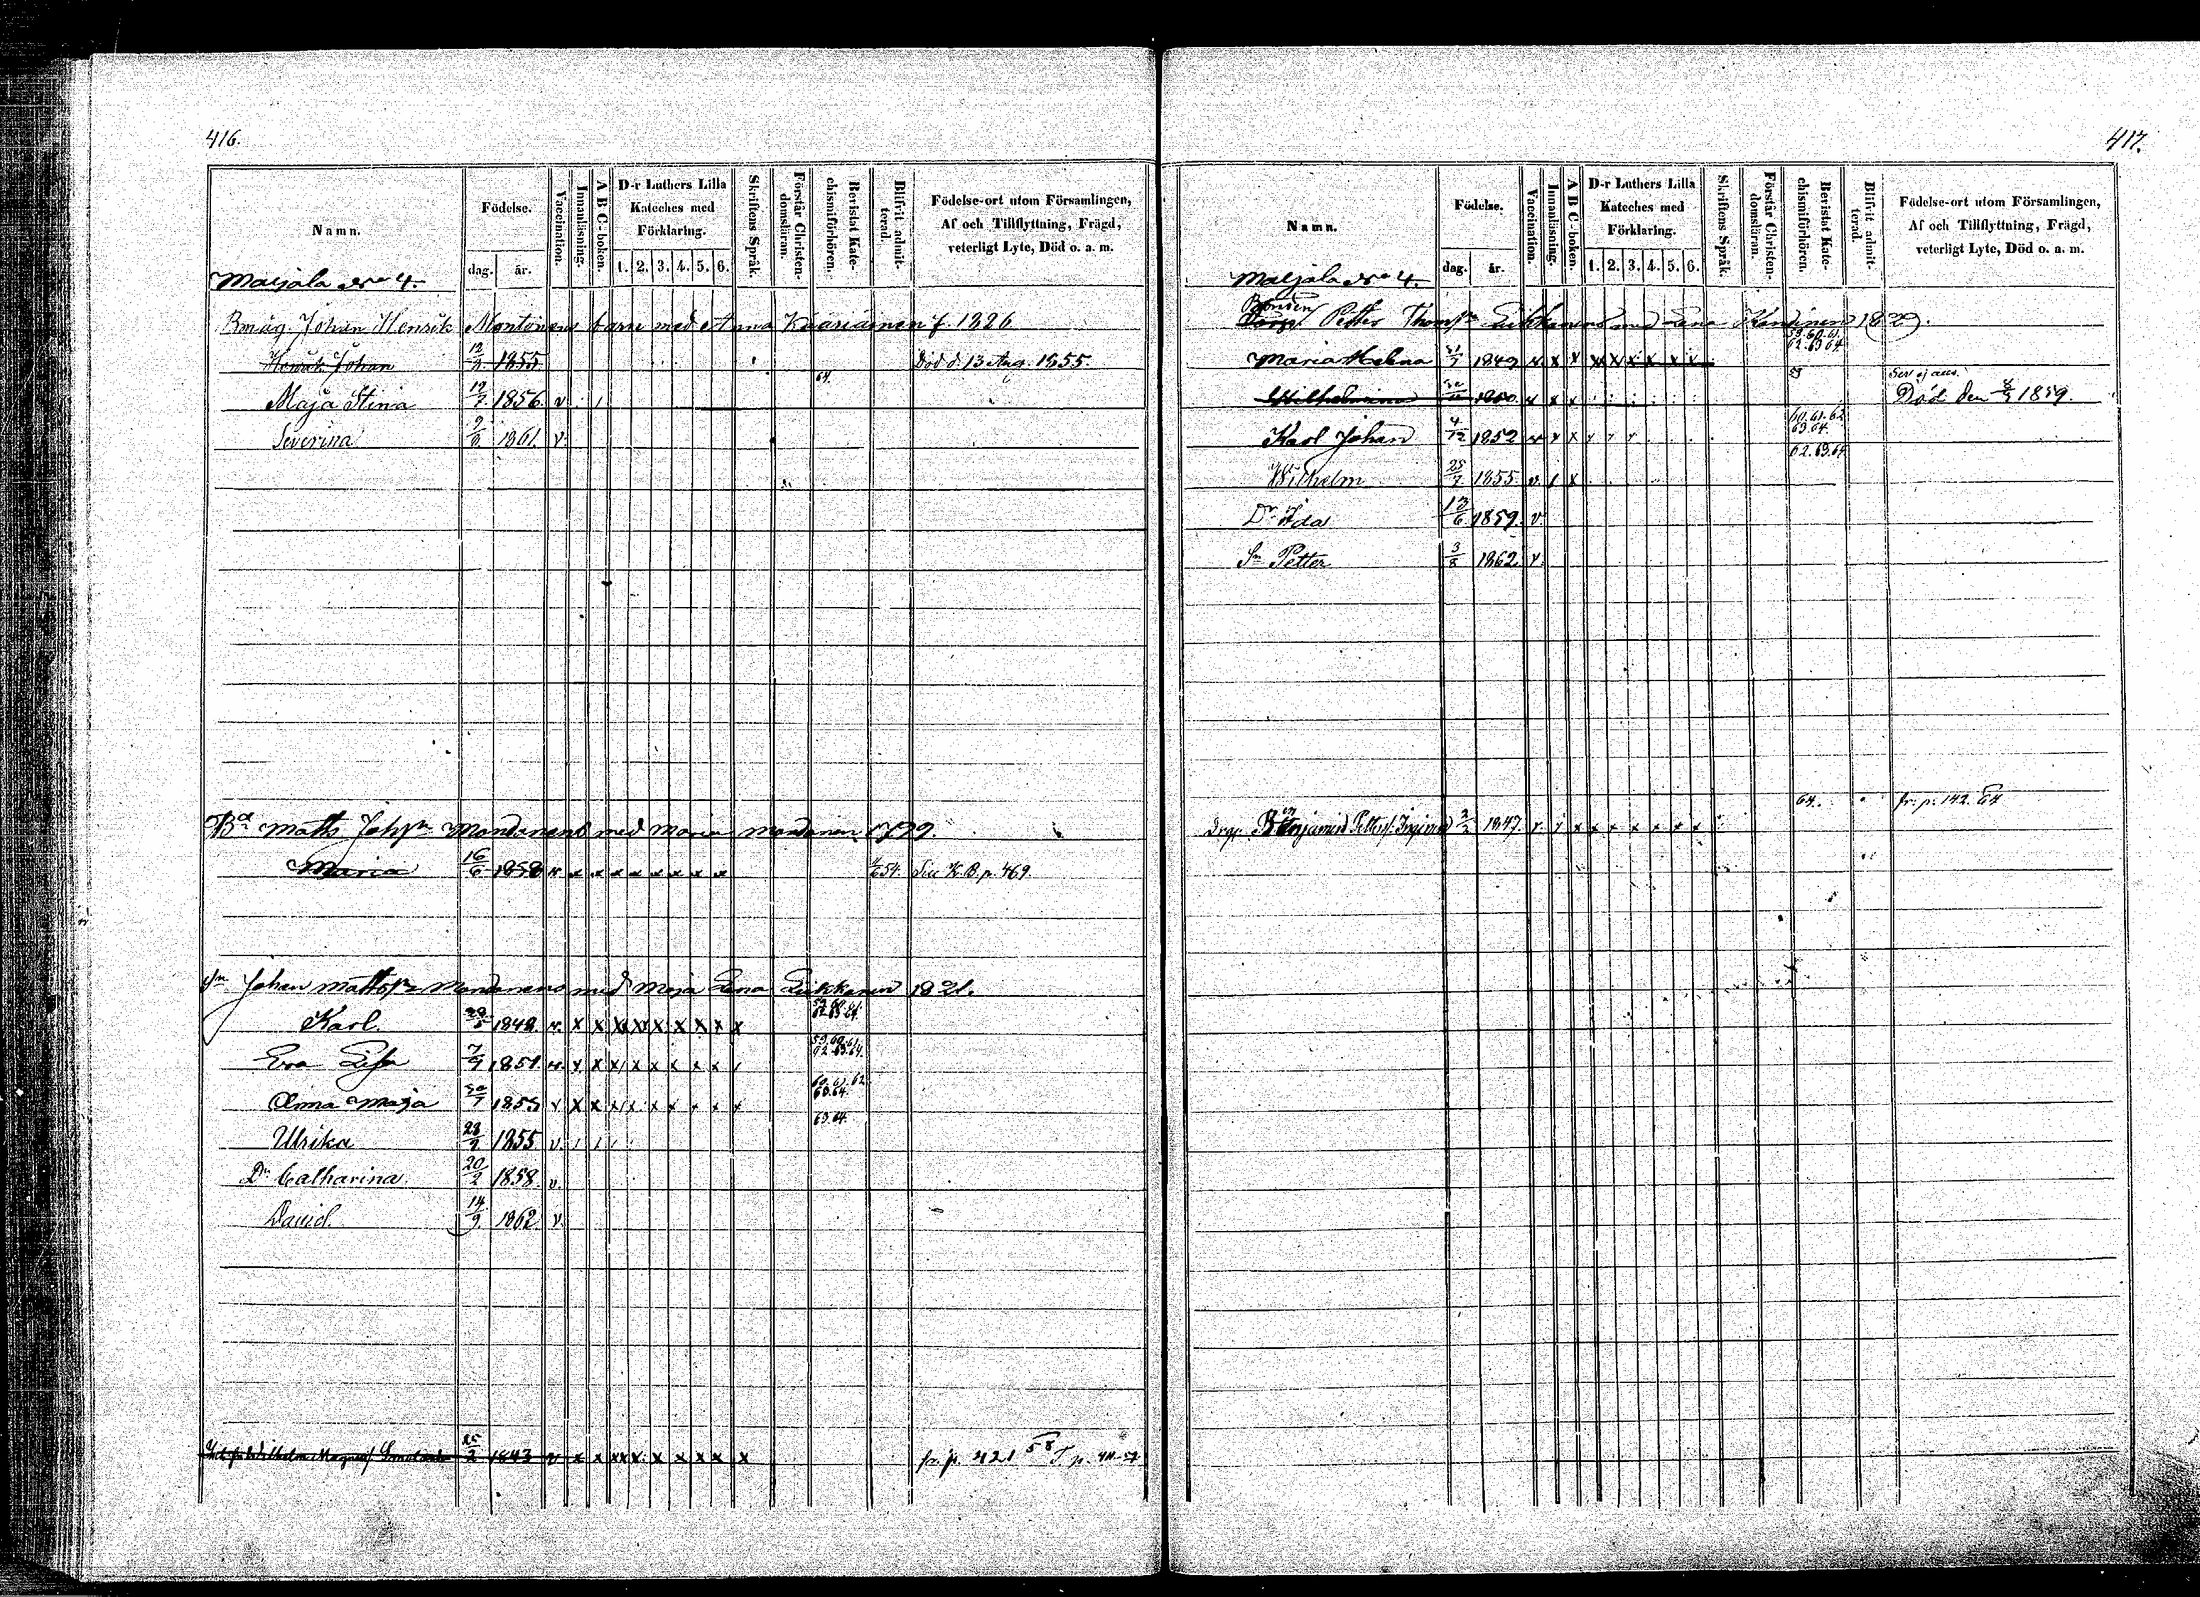 416.
Namn.
Födelse.
dag. år.
Vaccination.
Innanläsning.
A B C-boken.
D-r Luthers Lilla Kateches med Förklaring.
1. 2. 3. 4. 5. 6.
Skriftens Språk.
Förstår Christendomsläran.
Bevistat Katechismiförhören.
Blifvit admitterad.
Födelse-ort utom Församlingen, Af och Tillflyttning, Frägd, veterligt Lyte, Död o. a. m.
Maijala No 4.
Bmåg. Johan Henrik Montonens barn med Anna Kääriäinen f. 1826
Henrik Johan 12/2 1855 Död d. 13 Aug. 1855.
Maja Stina 12/7 1856 v 64.
Severina 9/6 1861. v.
Bd Matts Johsn Mondanens med Maria Mondanen 1799.
Maria 16/6 1838 v x x x x x x x x 54. See K.B. p. 469.
Sn Johan Mattss Mondanens med Maja Lena Liikkanen 1821.
Karl 1848 v. x x x x x x x x x 59.60.61. 62.63.64.
Eva Lisa 7/9 1851 v. x x x x x x x x 59.60.61. 62.63.64.
Anna Maja 30/7 1853 v x x x x x x x x x 60.61.62 63.64.
Ulrika 28/9 1855 v. 63.64.
Dr Catharina 20/2 1858 v.
David 14/9 1862 v.
Wilhelm 25/2 1843 v x x x x x x x x x fr. p. 421 58
417.
Namn.
Födelse.
dag. år.
Vaccination.
Innanläsning.
A B C-boken.
D-r Luthers Lilla Kateches med Förklaring.
1. 2. 3. 4. 5. 6.
Skriftens Språk.
Förstår Christendomsläran.
Bevistat Katechismiförhören.
Blifvit admitterad.
Födelse-ort utom Församlingen, Af och Tillflyttning, Frägd, veterligt Lyte, Död o. a. m.
Maijala No 4.
Bonden Petter Thomssn Liikkanens med Lena 1829.
Maria Helena 31/7 1849 v. x x x x x x x x 59.60.61. 62.63.64.
Wilhelmina 1850. v x x Död den 8/9 1859.
Karl Johan 4/12 1852 v x x x x x 60.61.62. 63.64.
Wilhelm 25/7 1855 v. x 62.63.64
Dr Ida 13/6 1859. v.
Sn Petter 3/8 1862 v.
Benjamin Petters. Inginen 2/2 1847. v. x x x x x x x x 64. fr. p. 142. 64